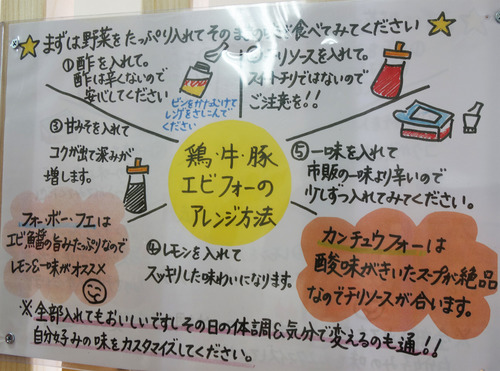 まずは野菜をたっぷり入れてそのまま食べてみてください
①酢を入れて。
酢は辛くないので
安心してください
ビンをかたむけて
レンゲをさしこんで
ください
チリソースを入れて。
スイートチリではないので
ご注意を!!
③甘みそを入れて
コクが出て深みが
増します。
鶏・牛・豚
エビフォーの
アレンジ方法
⑤一味を入れて
市販の一味より辛いので
少しずつ入れてみてください。
フォー・ボー・フエは
エビ醬の旨みたっぷりなので
レモン&一味がオススメ
④レモンを入れて
スッキリした味わいになります。
カンチュウフォーは
酸味がきいたスープが絶品
なのでチリソースが合います。
※全部入れてもおいしいですしその日の体調&気分で変えるのも通!!
自分好みの味をカスタマイズしてください。